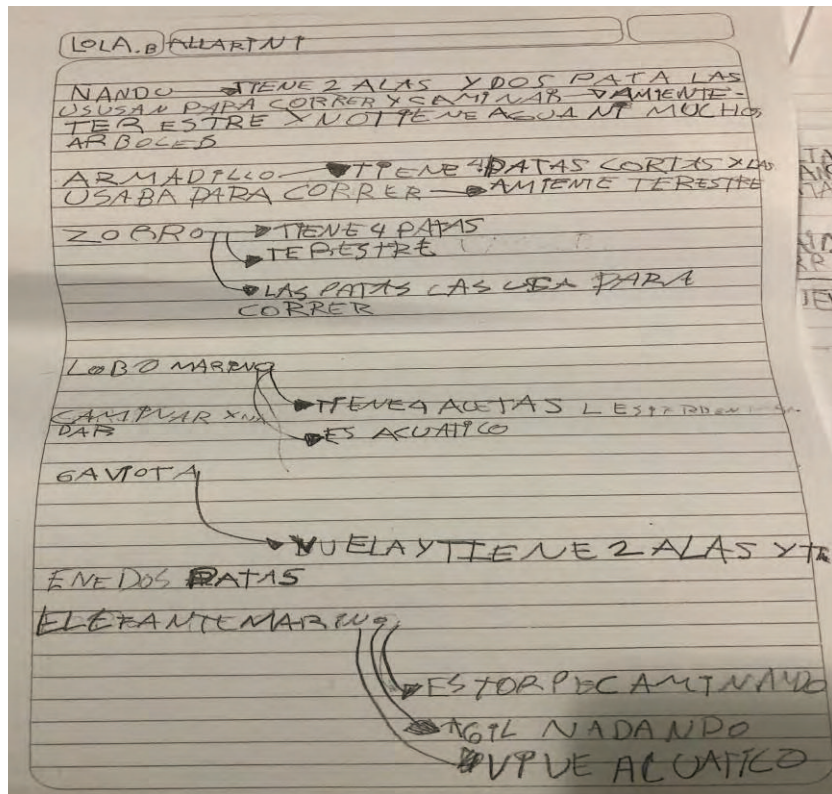 LOLA.B ALLARINI
NANDU TIENE 2 ALAS Y DOS PATA LAS
USUSAN PARA CORRER Y CAMINAR AMIENTE-
TERESTRE Y NOTIENE AGUA NI MUCHOS
ARBOLES
ARMADILLO TIENE 4 PATAS CORTAS Y LAS
USABA PARA CORRER AMIENTE TERESTRE
ZORRO TIENE 4 PATAS
TERESTRE
LAS PATAS LAS USA PARA
CORRER
LOBO MARINO
TIENE 4 ALETAS
CAMINAR Y NA
DAR
ES ACUATICO
GAVIOTA
VUELA Y TIENE 2 ALAS Y TI
ENE DOS PATAS
ELEFANTE MARINO
ES TORPE CAMINANDO
AGIL NADANDO
VIVE ACUATICO